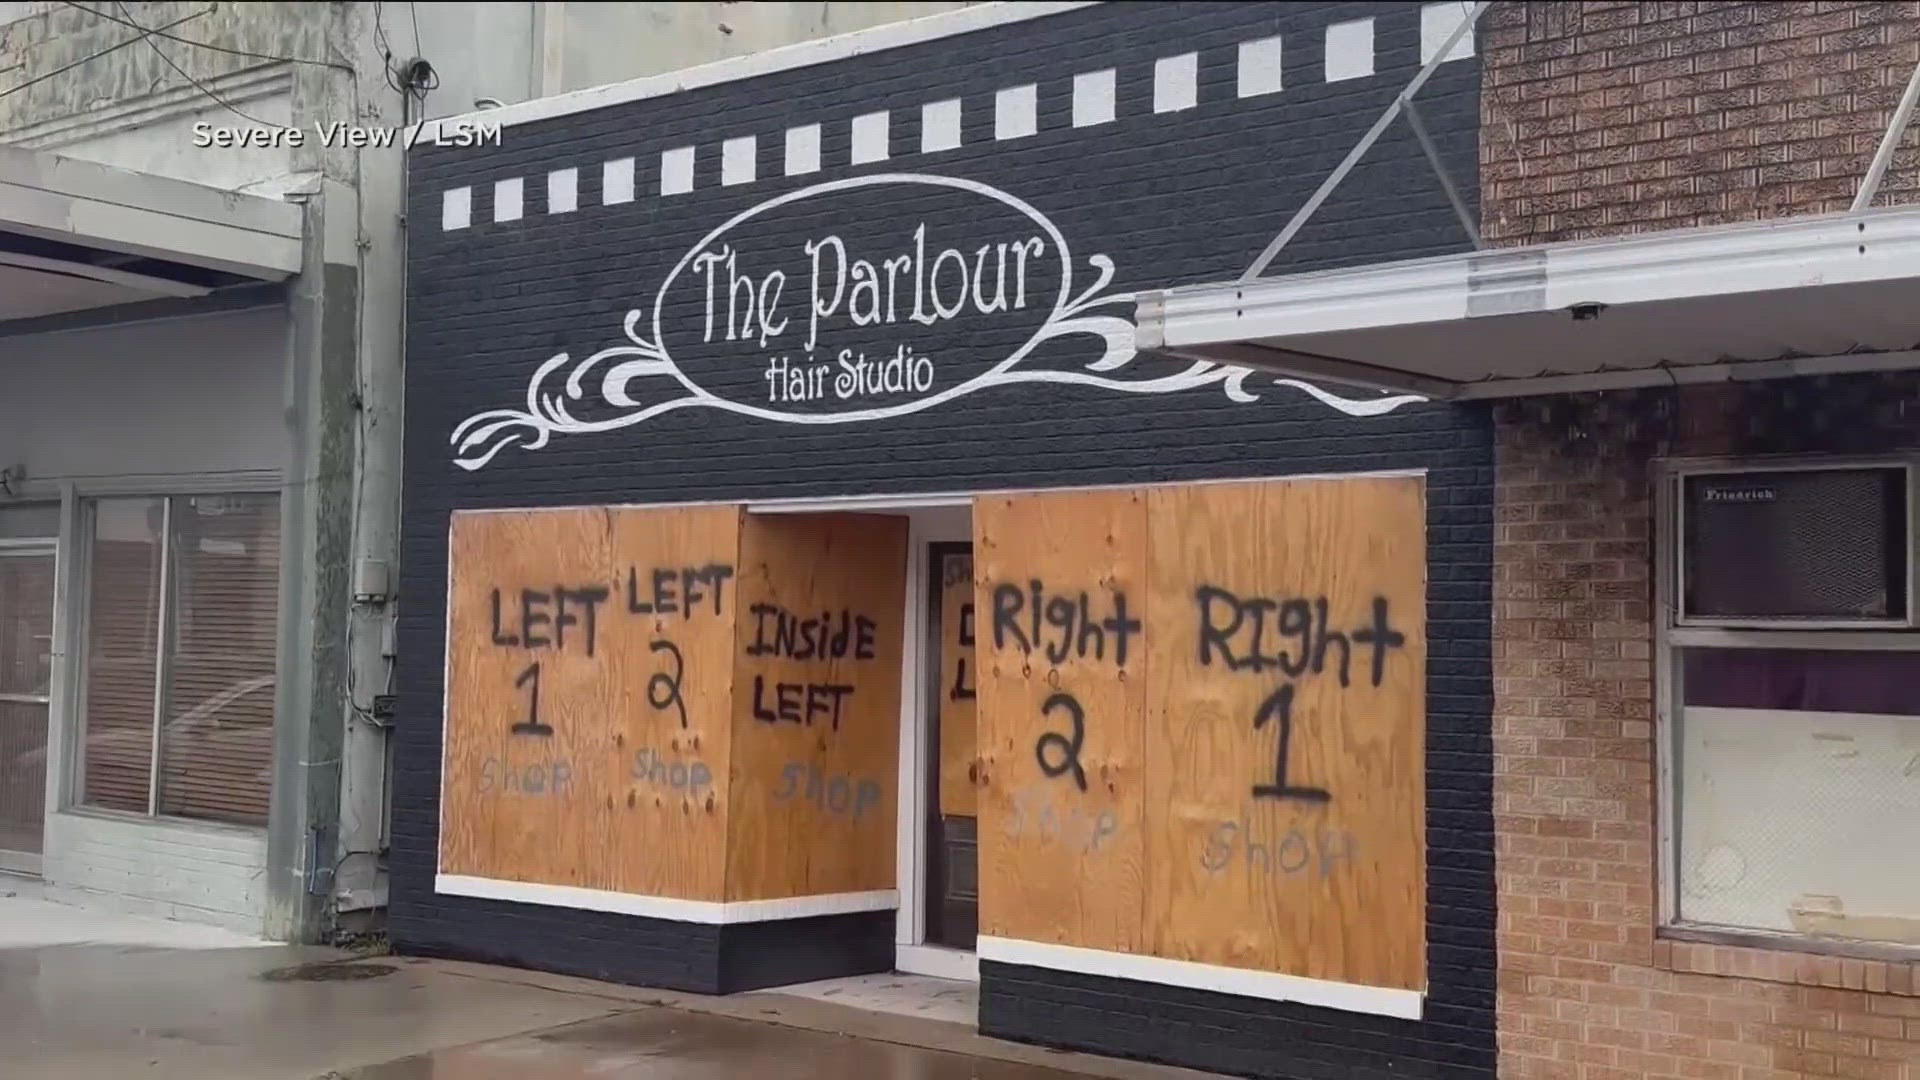 Severe View / LSM
The Parlour
Hair Studio
LEFT
1
Shop
LEFT
2
Shop
INSidE
LEFT
Shop
Right
2
Shop
RIght
1
Shop
Friedrich